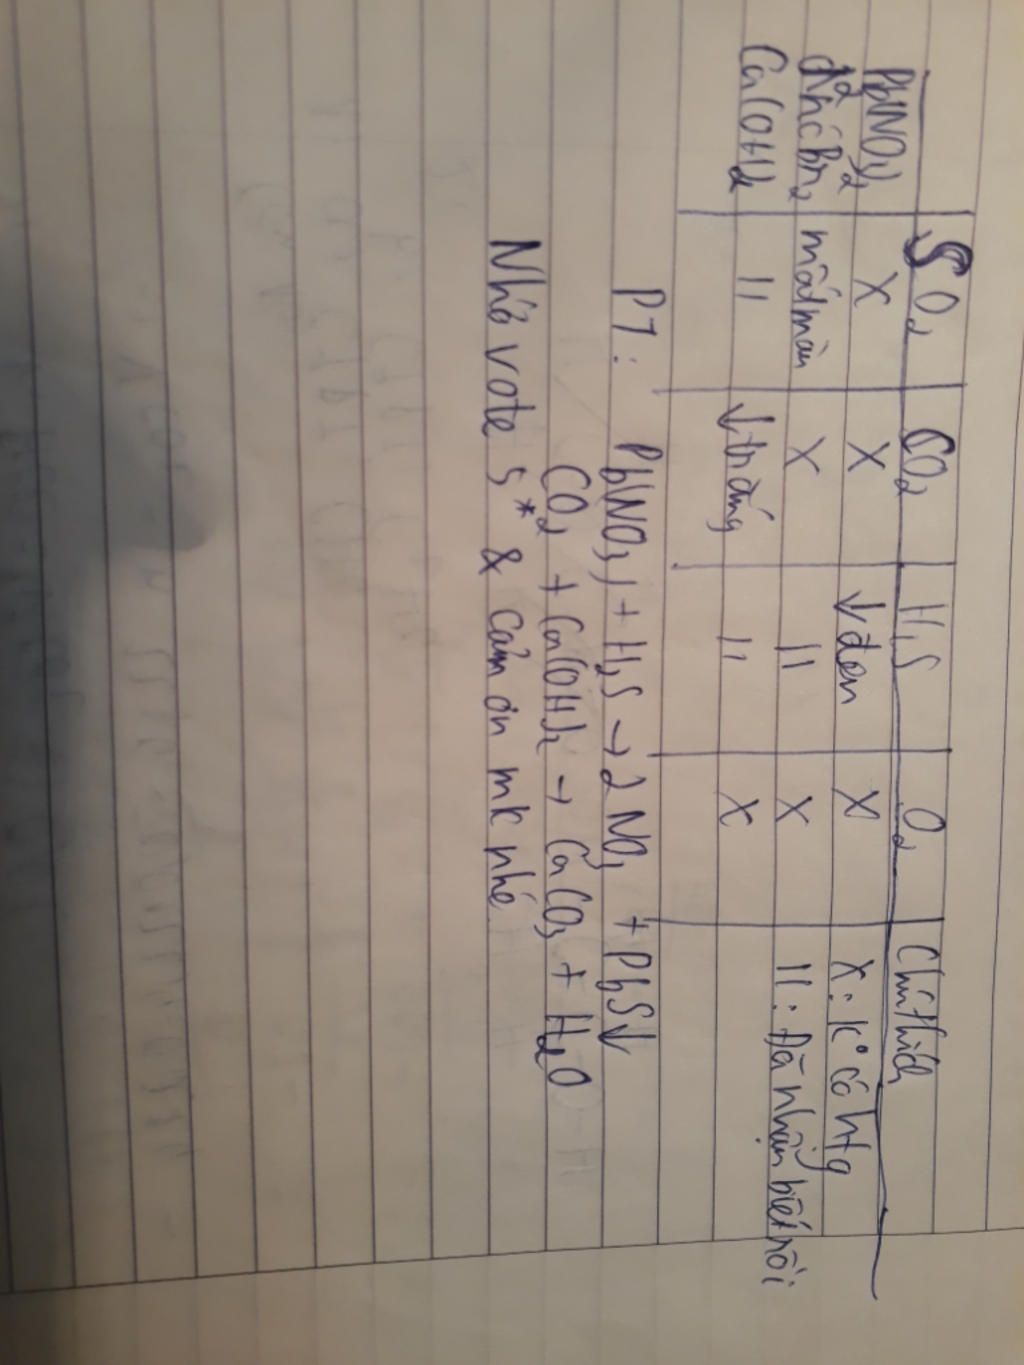 SO2 CO2 H2S O2 Chú thích
Pb(NO3)2 X X ↓đen X X: k° có htg
d² nước Br2 mất màu X || X ||: Đã nhận biết rồi
Ca(OH)2 || ↓trắng || X
PT: Pb(NO3) + H2S → 2NO3 + PbS↓
CO2 + Ca(OH)2 → CaCO3 + H2O
Nhớ vote 5* & cảm ơn mk nhé